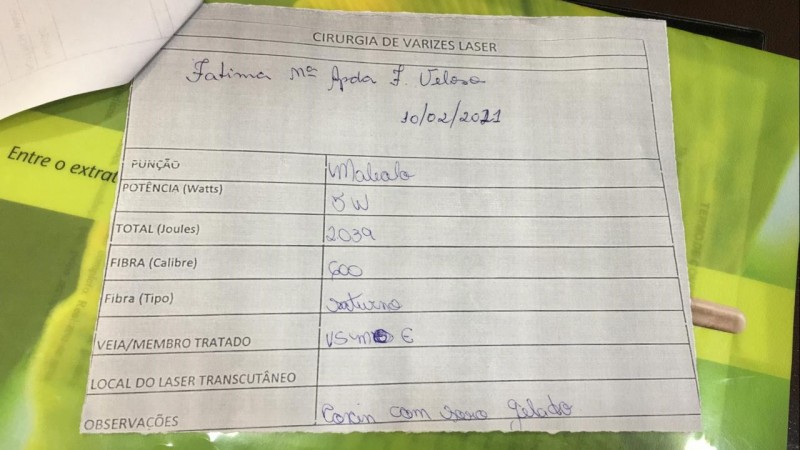 CIRURGIA DE VARIZES LASER
Fatima Mª Apda F. Veloso
10/02/2021
Entre o extrat
PUNÇÃO Maleolo
POTÊNCIA (Watts) 5 W
TOTAL (Joules) 2039
FIBRA (Calibre) 600
Fibra (Tipo) saturno
VEIA/MEMBRO TRATADO VSM E
LOCAL DO LASER TRANSCUTÂNEO
OBSERVAÇÕES Coxin com soro gelado